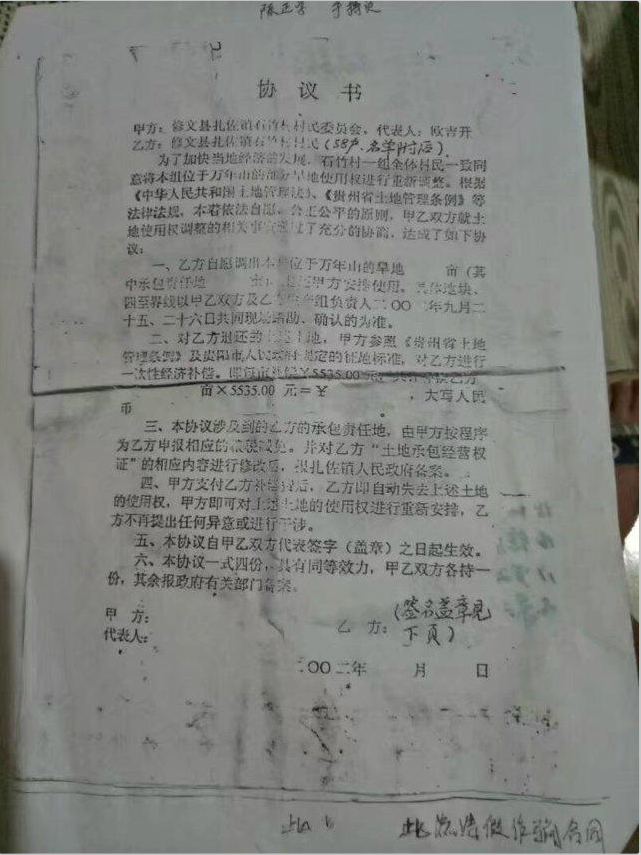 协 议 书
甲方：修文县扎佐镇石竹村村民委员会，代表人：欧吉开
乙方：修文县扎佐镇石竹村村民（58户，名单附后）
为了加快当地经济的发展，石竹村一组全体村民一致同
意将本组位于万年山的部分旱地使用权进行重新调整。根据
《中华人民共和国土地管理法》、《贵州省土地管理条例》等
法律法规，本着依法自愿、公正公平的原则，甲乙双方就土
地使用权调整的相关事宜进行了充分的协商，达成了如下协
议：
一、乙方自愿调出本组位于万年山的旱地 亩（其
中承包责任地 亩）退还甲方安排使用。具体地块、
四至界线以甲乙双方及乙方 组负责人二〇〇二年九月二
十五、二十六日共同现场踏勘、确认的为准。
二、对乙方退还的上述土地，甲方参照《贵州省土地
管理条例》及贵阳市人民政府规定的征地标准，对乙方进行
一次性经济补偿。即每亩补偿￥5535.00元，共计补偿乙方
亩×5535.00 元=￥ ，大写人民
币
三、本协议涉及到的乙方的承包责任地，由甲方按程序
为乙方申报相应的农税减免。并对乙方“土地承包经营权
证”的相应内容进行修改后，报扎佐镇人民政府备案。
四、甲方支付乙方补偿费后，乙方即自动失去上述土地
的使用权，甲方即可对上述土地的使用权进行重新安排，乙
方不再提出任何异意或进行干涉。
五、本协议自甲乙双方代表签字（盖章）之日起生效。
六、本协议一式四份，具有同等效力，甲乙双方各持一
份，其余报政府有关部门备案。
甲 方：
乙 方：（签名盖章见
下页）
代表人：
二〇〇二年 月 日